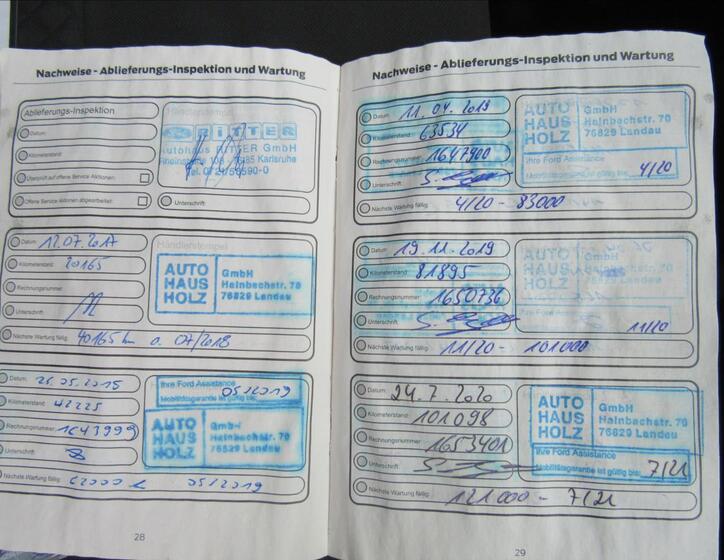 Nachweise - Ablieferungs-Inspektion und Wartung
Ablieferungs-Inspektion
Händlerstempel
Datum:
Kilometerstand:
Überprüft auf offene Service Aktionen:
Offene Service Aktionen abgearbeitet:
Ford RITTER
Autohaus RITTER GmbH
Karlsruhe
Unterschrift:
Datum: 12.07.2017
Kilometerstand: 20165
Rechnungsnummer:
Unterschrift:
Händlerstempel
AUTO HAUS HOLZ
GmbH
Hainbachstr. 70
76829 Landau
Nächste Wartung fällig: 40165 km o. 07/2018
Datum:
Kilometerstand: 42225
Rechnungsnummer: 1643999
Unterschrift:
Ihre Ford Assistance
Mobilitätsgarantie ist gültig bis: 05/2019
AUTO HAUS HOLZ
GmbH
Hainbachstr. 70
76829 Landau
Nächste Wartung fällig: 62000 05/2019
28
Nachweise - Ablieferungs-Inspektion und Wartung
Datum: 11.04.2019
Kilometerstand: 63534
Rechnungsnummer: 1647900
Unterschrift:
AUTO HAUS HOLZ
GmbH
Hainbachstr. 70
76829 Landau
Ihre Ford Assistance
Mobilitätsgarantie ist gültig bis: 4/20
Nächste Wartung fällig: 4/20 - 83000
Datum: 19.11.2019
Kilometerstand: 81895
Rechnungsnummer: 1650736
Unterschrift:
AUTO HAUS HOLZ
GmbH
Hainbachstr. 70
76829 Landau
Ihre Ford Assistance
11/20
Nächste Wartung fällig: 11/20 - 101000
Datum: 24.7.2020
Kilometerstand: 101098
Rechnungsnummer: 1653401
Unterschrift:
AUTO HAUS HOLZ
GmbH
Hainbachstr. 70
76829 Landau
Ihre Ford Assistance
Mobilitätsgarantie ist gültig bis: 7/21
Nächste Wartung fällig: 121000 - 7/21
29